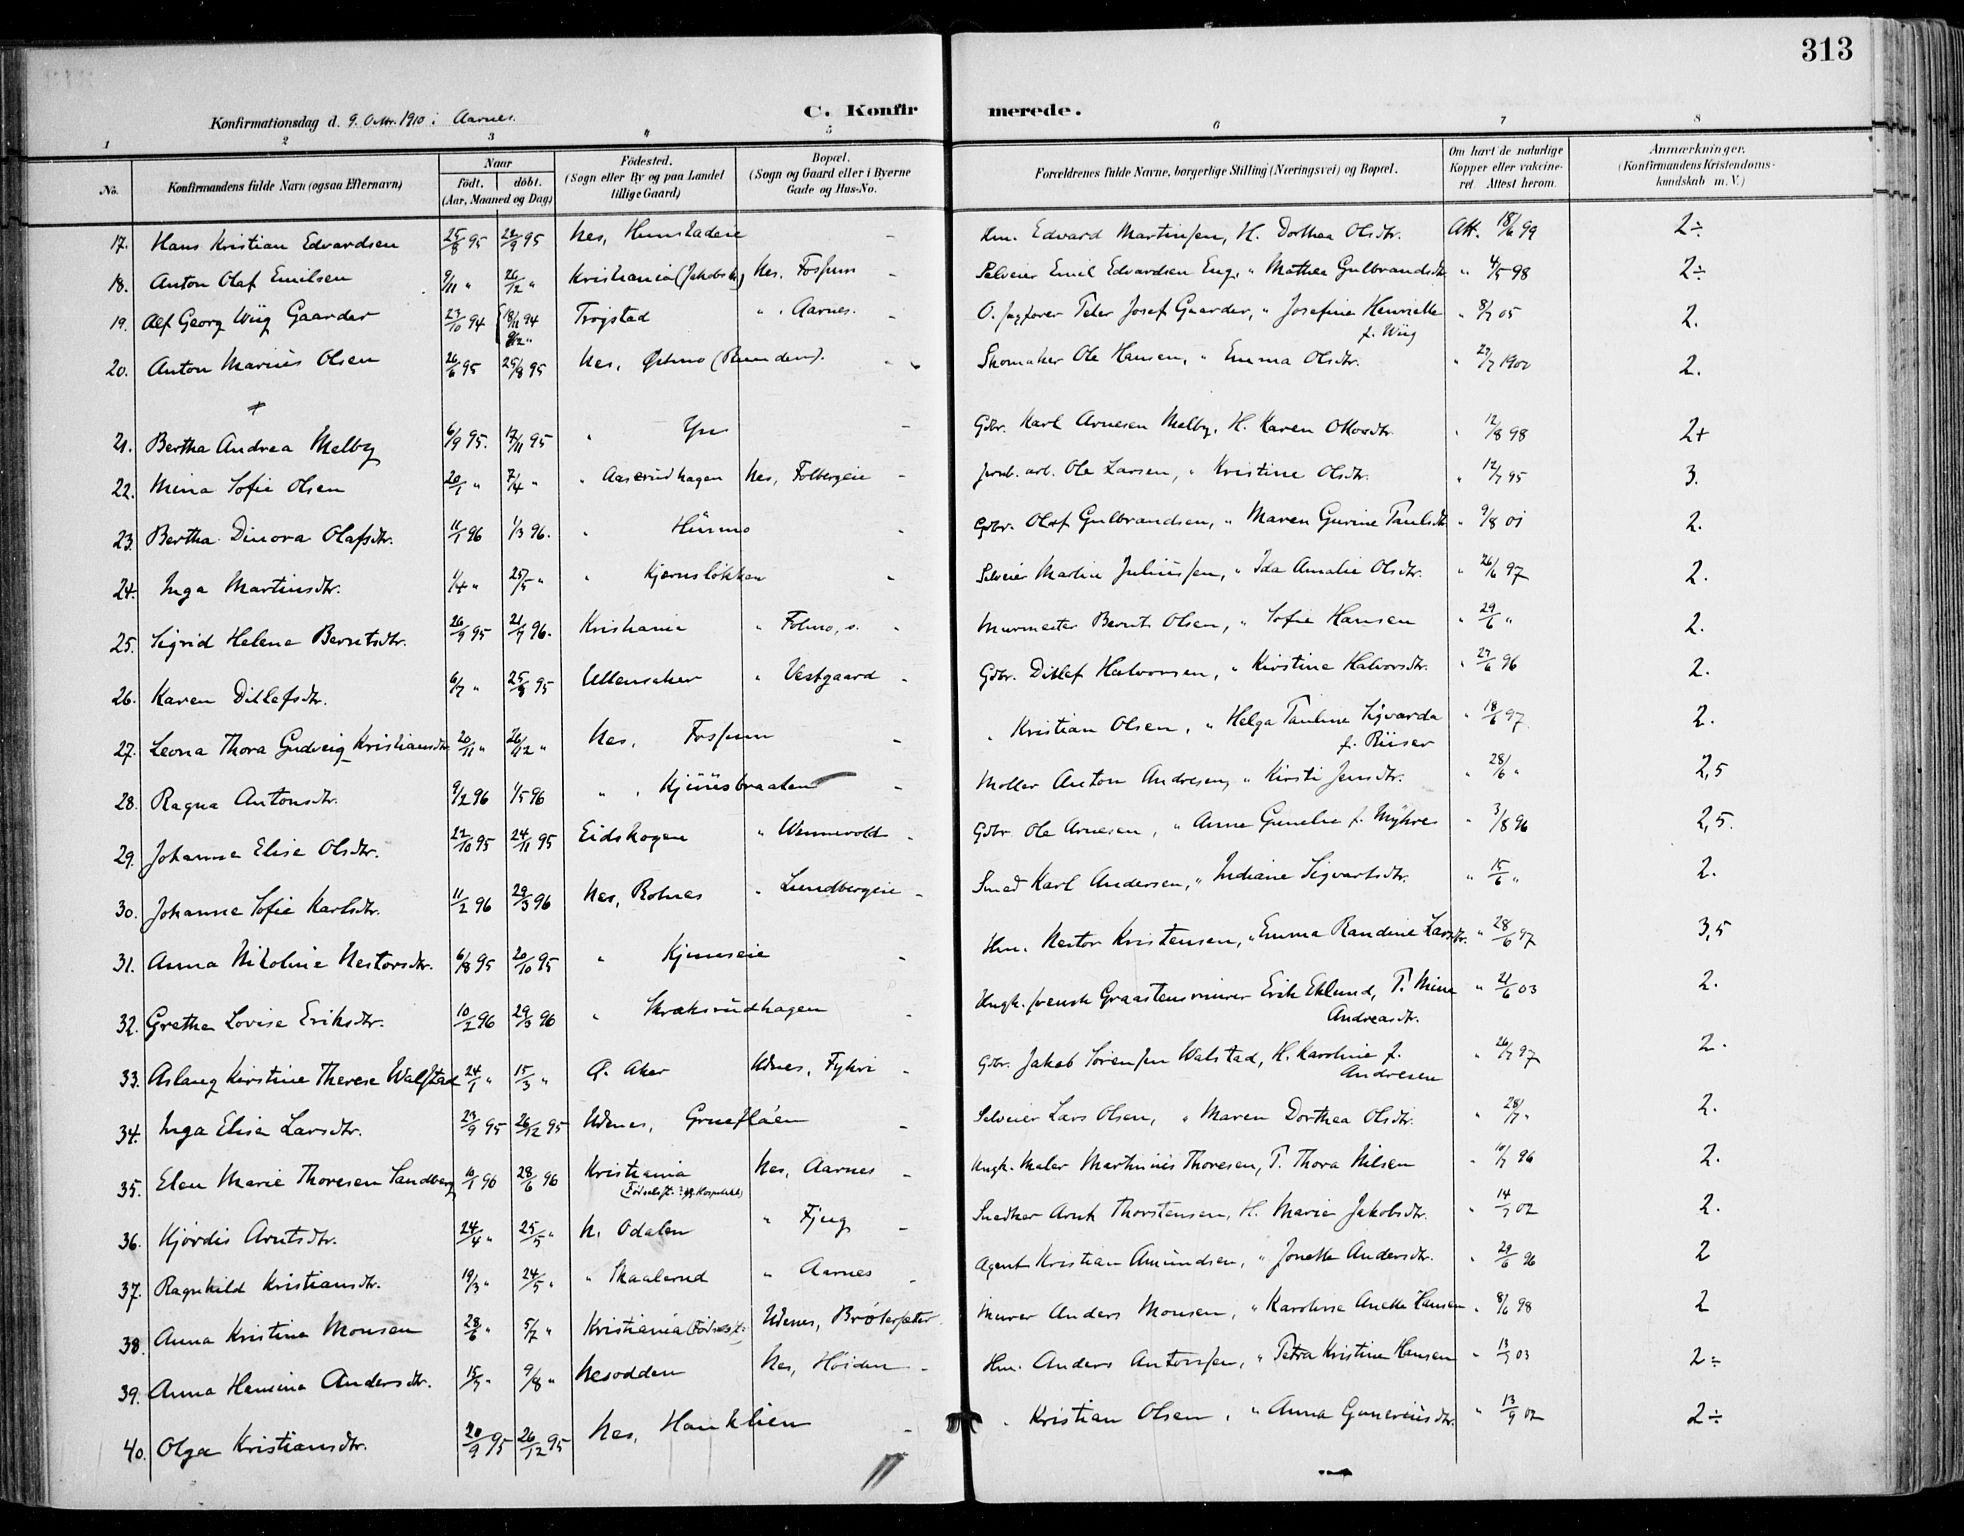 313
Konfirmationsdag d. 9. Oktbr. 1910 i Aarnes.
C. Konfirmerede.
1 2 3 4 5 6 7 8
No. Konfirmandens fulde Navn (ogsaa Efternavn) Naar født. døbt. (Aar, Maaned og Dag) Fødested. (Sogn eller By og paa Landet tillige Gaard) Bopæl. (Sogn og Gaard eller i Byerne Gade og Hus-No. Forældrenes fulde Navne, borgerlige Stilling (Næringsvei) og Bopæl. Om havt de naturlige Kopper eller vaccineret Attest herom. Anmærkninger. (Konfirmandens Kristendomskundskab m. V.)
17. Hans Kristian Edvardsen 25/8 95 22/9 95 Nes, - Hm. Edvard Martinsen, H. Dorthea Olsdtr. Att. 18/6 99 2÷
18. Anton Olaf Emilsen 9/11 " 26/12 " Kristiania (Jakobs k) Nes, Fossum - Selveier Emil Edvardsen Eng, " Mathea Gulbrandsdtr " 4/5 98 2÷
19. Alf Georg Wiig Gaarder 23/10 94 18/11 94 Trøgstad " , Aarnes. - O. sagfører Peter Josef Gaarder, " Josefine Henriette f. Wiig " 8/7 05 2.
20. Anton Marius Olsen 26/6 95 25/8 95 Nes, Østmo (Runden). - Skomaker Ole Hansen, " Emma Olsdtr. " 27/7 1900 2.
21. Bertha Andrea Melby 6/9 95. 17/11 95 " Yss - Gdbr. Karl Arnesen Melby, H. Karen Ottosdtr. " 12/8 98 2+
22. Mina Sofie Olsen 20/1 " 7/4 " " Aaserudhagen Nes, Folbergeie - Jernb. arb. Ole Larsen, " Kristine Olsdtr. " 12/7 95 3.
23. Bertha Dinora Olafsdtr. 11/1 96 1/3 96. " Hurmo - Gdbr. Olaf Gulbrandsen, " Maren Gurine Paulsdtr " 9/8 01 2.
24. Inga Martinsdtr. 1/4 " 25/5 " " Kjernsløkken - Selveier Martin Juliussen, " Ida Amalie Olsdtr. " 26/6 97 2.
25. Sigrid Helene Berntsdtr. 26/9 95 21/9 96. Kristiania " Folmo, s. - Murmester Bernt Olsen, " Sofie Hansen " 29/6 " 2.
26. Karen Ditlefsdtr. 6/7 " 25/8 95 Ullensaker " Vestgaard - Gdbr. Ditlef Halvorsen, " Kirstine Halvorsdtr. " 27/6 96 2.
27. Leona Thora Gudveig Kristiansdtr 20/11 " 26/12 " Nes, Fossum " Kristian Olsen, " Helga Pauline Sigvarda f. Riiser " 18/6 97 2.
28. Ragna Antonsdtr. 9/2 96 1/5 96 " , Kjuusbraaten - Møller Anton Andresen, " Kirsti Jensdtr. " 28/6 " 2,5
29. Johanne Elise Olsdtr. 22/10 95 24/11 95 Eidskogen " Wennevold - Gdbr Ole Arnesen, " Anne Gunelie f. Myhre " 3/8 96 2,5.
30. Johanne Sofie Karlsdtr. 11/2 96 29/3 96 Nes, Rotnes " Lundbergeie - Smed Karl Andersen, " Indiane Sigvartsdtr. " 15/6 " 2.
31. Anna Nikoline Nestorsdtr. 6/8 95 20/10 95 " Kjunseie - Hm. Nestor Kristensen, " Emma Randine Larsdtr. " 28/6 97 3,5
32. Grethe Lovise Eriksdtr. 10/2 96 29/3 96 " Skraksrudhagen - Ungk. svensk Graastensmurer Erik Eklund, P. Mina Andreasdtr. " 21/6 03 2.
33. Aslaug Kirstine Therese Walstad 24/1 " 15/3 " Ø. Aker Udnes, Fykri - Gdbr. Jakob Sørensen Walstad, H. Karoline f. Andresen " 26/7 97 2.
34. Inga Elise Larsdtr. 23/9 95 26/12 95 Udenes, Grueflåen - Selveier Lars Olsen, " Maren Dorthea Olsdtr. " 28/7 " 2.
35. Elen Marie Thoresen Sandberg 10/1 96 28/6 96 Kristiania Nes, Aarnes - Ungk. Maler Martinius Thoresen, P. Thora Nilsen " 10/7 96 2.
36. Hjørdis Arntsdtr. 24/4 " 25/5 " N. Odalen " Fjug - Snedker Arnt Thorstensen, H. Marie Jakobsdtr. " 14/7 02 2.
37. Ragnhild Kristiansdtr. 19/3 " 24/5 " " Skaalerud " Aarnes - Agent Kristian Amundsen, " Jonette Andersdtr. " 29/6 96 2
38. Anna Kristine Monsen 28/6 " 5/7 " Kristiania (Fødselsst. Udenes, Brøtersæter. Murer Anders Monsen, " Karoline Anette Hansen " 8/6 98 2
39. Anna Hansine Andersdtr. 15/7 " 9/8 " Nesodden Nes, Høiden - Hm. Anders Antonsen, " Petra Kristine Hansen " 13/9 03 2÷
40. Olga Kristiansdtr. 20/9 95 26/12 95 Nes, Hauklien - " Kristian Olsen, " Anna Gunereiusdtr. " 13/9 02 2÷